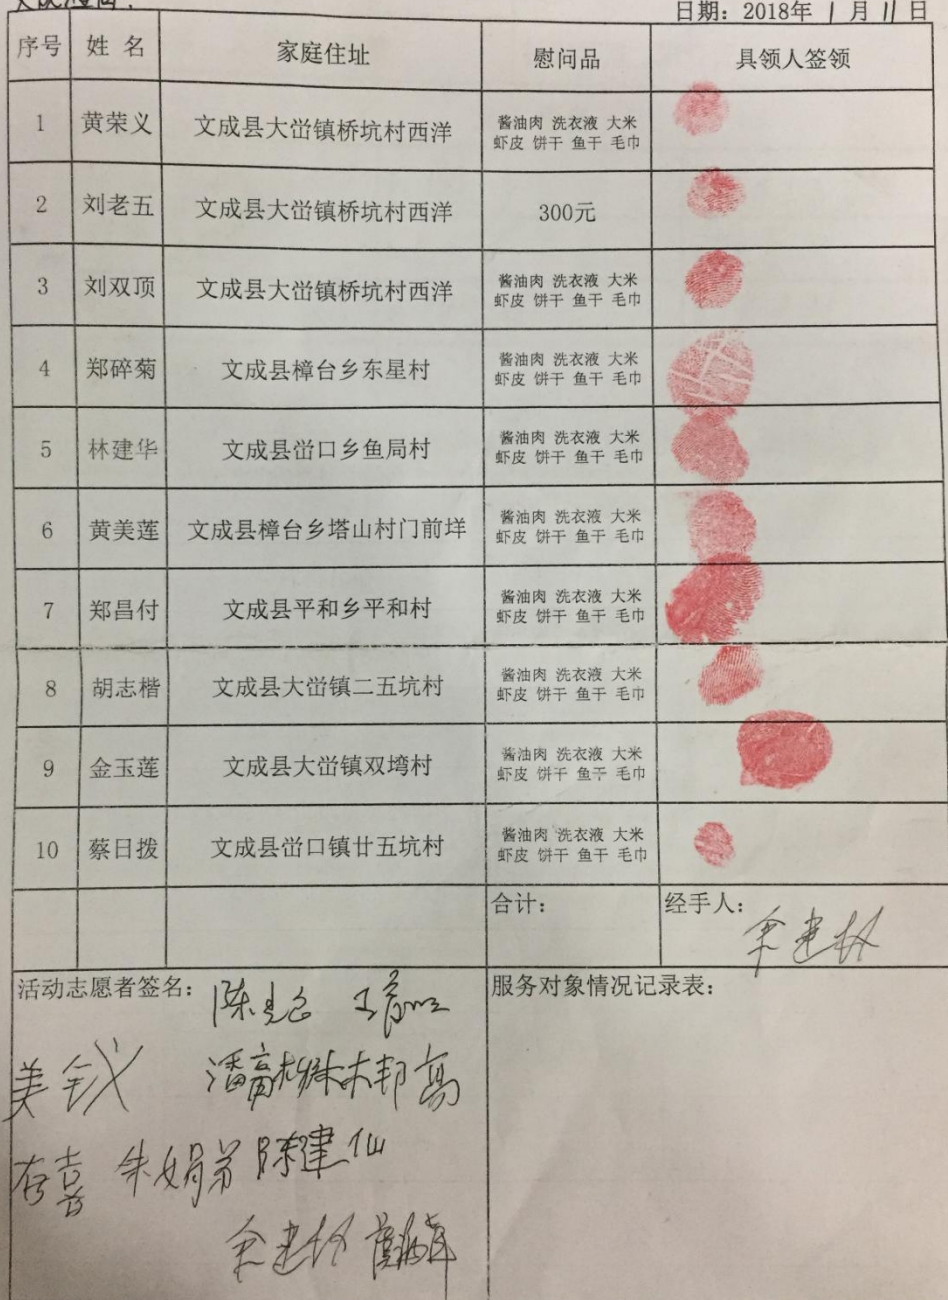 日期：2018年 1 月 11 日
序号 姓 名 家庭住址 慰问品 具领人签领
1 黄荣义 文成县大峃镇桥坑村西洋 酱油肉 洗衣液 大米
虾皮 饼干 鱼干 毛巾
2 刘老五 文成县大峃镇桥坑村西洋 300元
3 刘双顶 文成县大峃镇桥坑村西洋 酱油肉 洗衣液 大米
虾皮 饼干 鱼干 毛巾
4 郑碎菊 文成县樟台乡东星村 酱油肉 洗衣液 大米
虾皮 饼干 鱼干 毛巾
5 林建华 文成县峃口乡鱼局村 酱油肉 洗衣液 大米
虾皮 饼干 鱼干 毛巾
6 黄美莲 文成县樟台乡塔山村门前垟 酱油肉 洗衣液 大米
虾皮 饼干 鱼干 毛巾
7 郑昌付 文成县平和乡平和村 酱油肉 洗衣液 大米
虾皮 饼干 鱼干 毛巾
8 胡志楷 文成县大峃镇二五坑村 酱油肉 洗衣液 大米
虾皮 饼干 鱼干 毛巾
9 金玉莲 文成县大峃镇双塆村 酱油肉 洗衣液 大米
虾皮 饼干 鱼干 毛巾
10 蔡日拨 文成县峃口镇廿五坑村 酱油肉 洗衣液 大米
虾皮 饼干 鱼干 毛巾
合计： 经手人：
活动志愿者签名： 服务对象情况记录表：
陈建仙